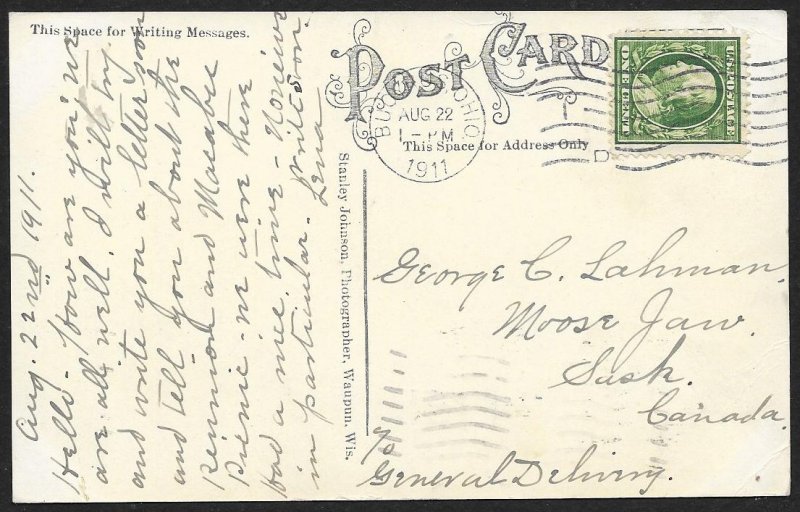 This Space for Writing Messages.
POST CARD
This Space for Address Only
OHIO
AUG 22
1-PM
1911
U.S. POSTAGE
ONE CENT
Stanley Johnson, Photographer, Waupun, Wis.
Aug. 22nd 1911.
Hello - How are you? We
are all well. I will try
and write you a letter soon
and tell you about the
Reunion and Macabee
Picnic - we were there
Had a nice time - No news
in particular. Write soon.
Lena
George C. Lahman,
Moose Jaw,
Sask.
Canada.
c/o
General Delivery.